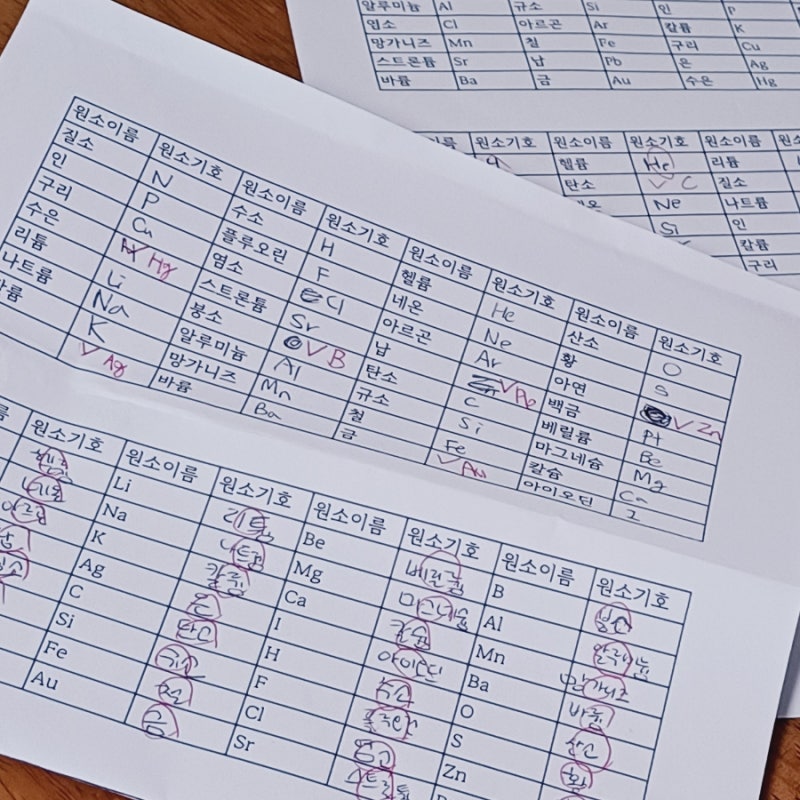 알루미늄 Al 규소 Si 인 P
염소 Cl 아르곤 Ar 칼륨 K
망가니즈 Mn 철 Fe 구리 Cu
스트론튬 Sr 납 Pb 은 Ag
바륨 Ba 금 Au 수은 Hg
원소기호 원소이름 원소기호 원소이름
헬륨 He 리튬
탄소 C 질소
Ne 나트륨
Si 인
칼륨
구리
원소이름 원소기호 원소이름 원소기호 원소이름 원소기호 원소이름 원소기호
질소 N 수소 H 헬륨 He 산소 O
인 P 플루오린 F 네온 Ne 황 S
구리 Cu 염소 Cl 아르곤 Ar 아연 Zn
수은 Hg 스트론튬 Sr 납 Pb 백금 Pt
리튬 Li 붕소 B 탄소 C 베릴륨 Be
나트륨 Na 알루미늄 Al 규소 Si 마그네슘 Mg
K 망가니즈 Mn 철 Fe 칼슘 Ca
Ag 바륨 Ba 금 Au 아이오딘 I
원소기호 원소이름 원소기호 원소이름 원소기호 원소이름 원소기호
헬륨 Li 리튬 Be 베릴륨 B 붕소
네온 Na 나트륨 Mg 마그네슘 Al 알루미늄
아르곤 K 칼륨 Ca 칼슘 Mn 망가니즈
납 Ag 은 I 아이오딘 Ba 바륨
C 탄소 H 수소 O 산소
Si 규소 F 플루오린 S 황
Fe 철 Cl 염소 Zn
Au 금 Sr 스트론튬